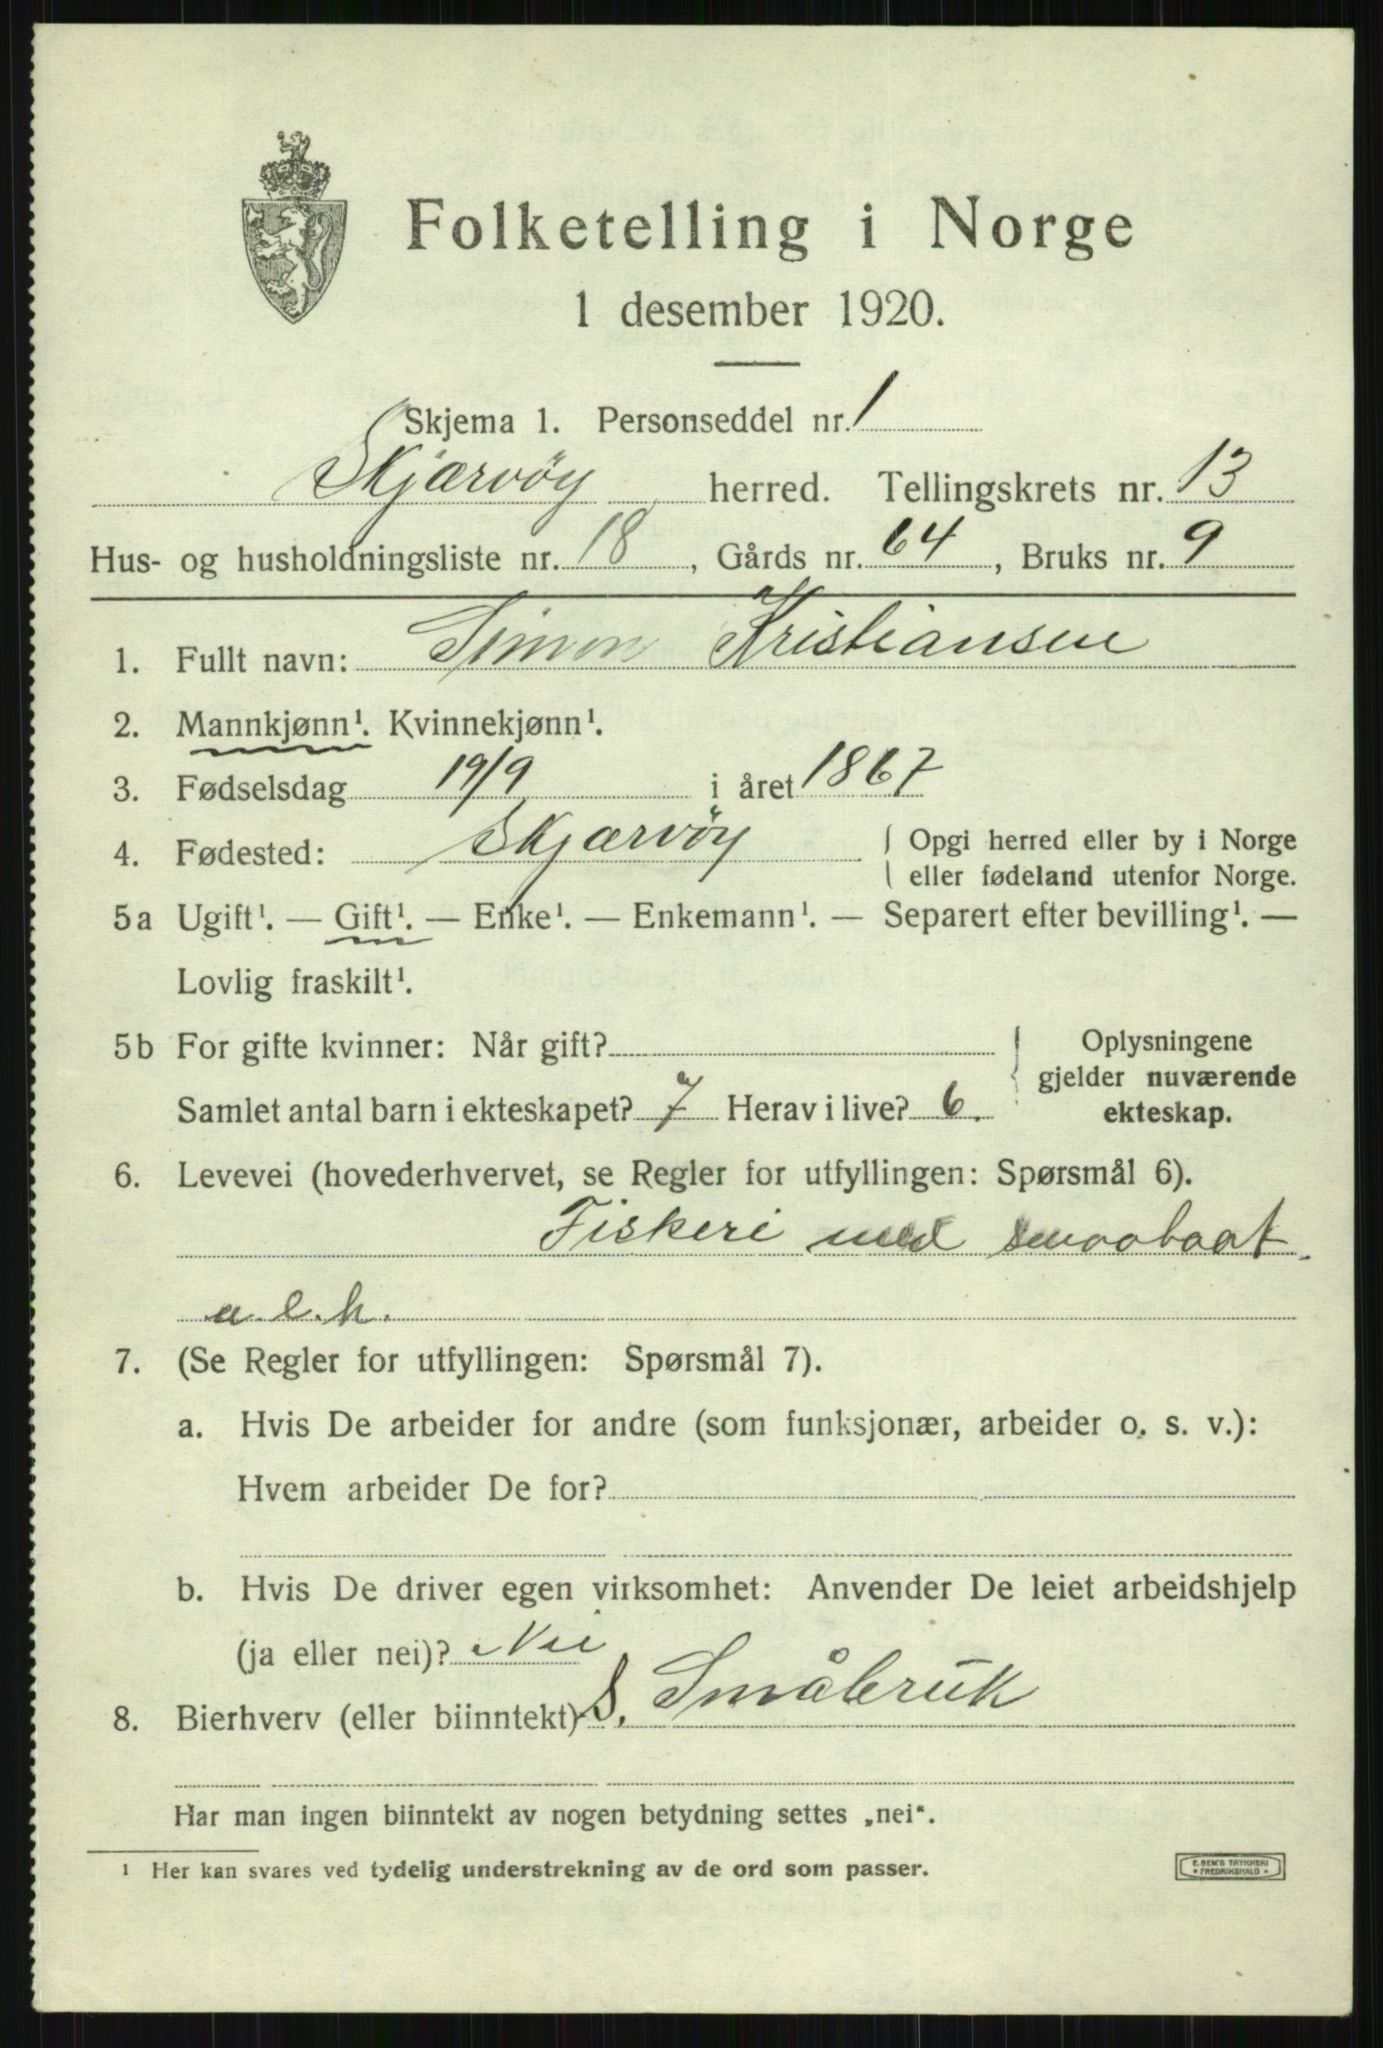 Folketelling i Norge
1 desember 1920.
Skjema 1. Personseddel nr. 1
Skjærvöy herred. Tellingskrets nr. 13
Hus- og husholdningsliste nr. 18, Gårds nr. 64, Bruks nr. 9
1. Fullt navn: Simon Kristiansen
2. Mannkjønn¹. Kvinnekjønn¹.
3. Fødselsdag 19/9 i året 1867
4. Fødested: Skjærvöy { Opgi herred eller by i Norge
eller fødeland utenfor Norge.
5a Ugift¹. — Gift¹. — Enke¹. — Enkemann¹. — Separert efter bevilling¹. —
Lovlig fraskilt¹.
5b For gifte kvinner: Når gift? { Oplysningene
gjelder nuværende
Samlet antal barn i ekteskapet? 7 Herav i live? 6. ekteskap.
6. Levevei (hovederhvervet, se Regler for utfyllingen: Spørsmål 6).
Fiskeri med smaabaat
a.l.h.
7. (Se Regler for utfyllingen: Spørsmål 7).
a. Hvis De arbeider for andre (som funksjonær, arbeider o. s. v.):
Hvem arbeider De for?
b. Hvis De driver egen virksomhet: Anvender De leiet arbeidshjelp
(ja eller nei)? Nei
8. Bierhverv (eller biinntekt) S. Småbruk
Har man ingen biinntekt av nogen betydning settes „nei“.
¹ Her kan svares ved tydelig understrekning av de ord som passer.
E. SEM'S TRYKKERI
* FREDRIKSHALD *